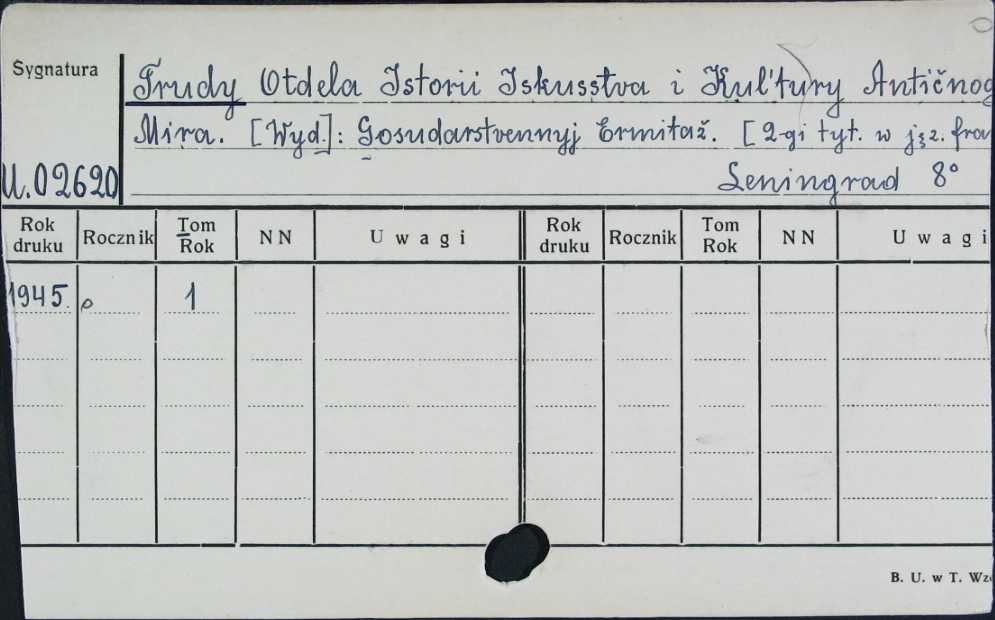 Sygnatura
Trudy Otdela Istorii Iskusstva i Kul'tury Antičnog
Mira. [Wyd.]: Gosudarstvennyj Ermitaž. [2-gi tyt. w jęz. fra
U.02620
Leningrad 8°
Rok druku Rocznik Tom Rok NN Uwagi Rok druku Rocznik Tom Rok NN Uwagi
1945. 1
B. U. w T. Wzó